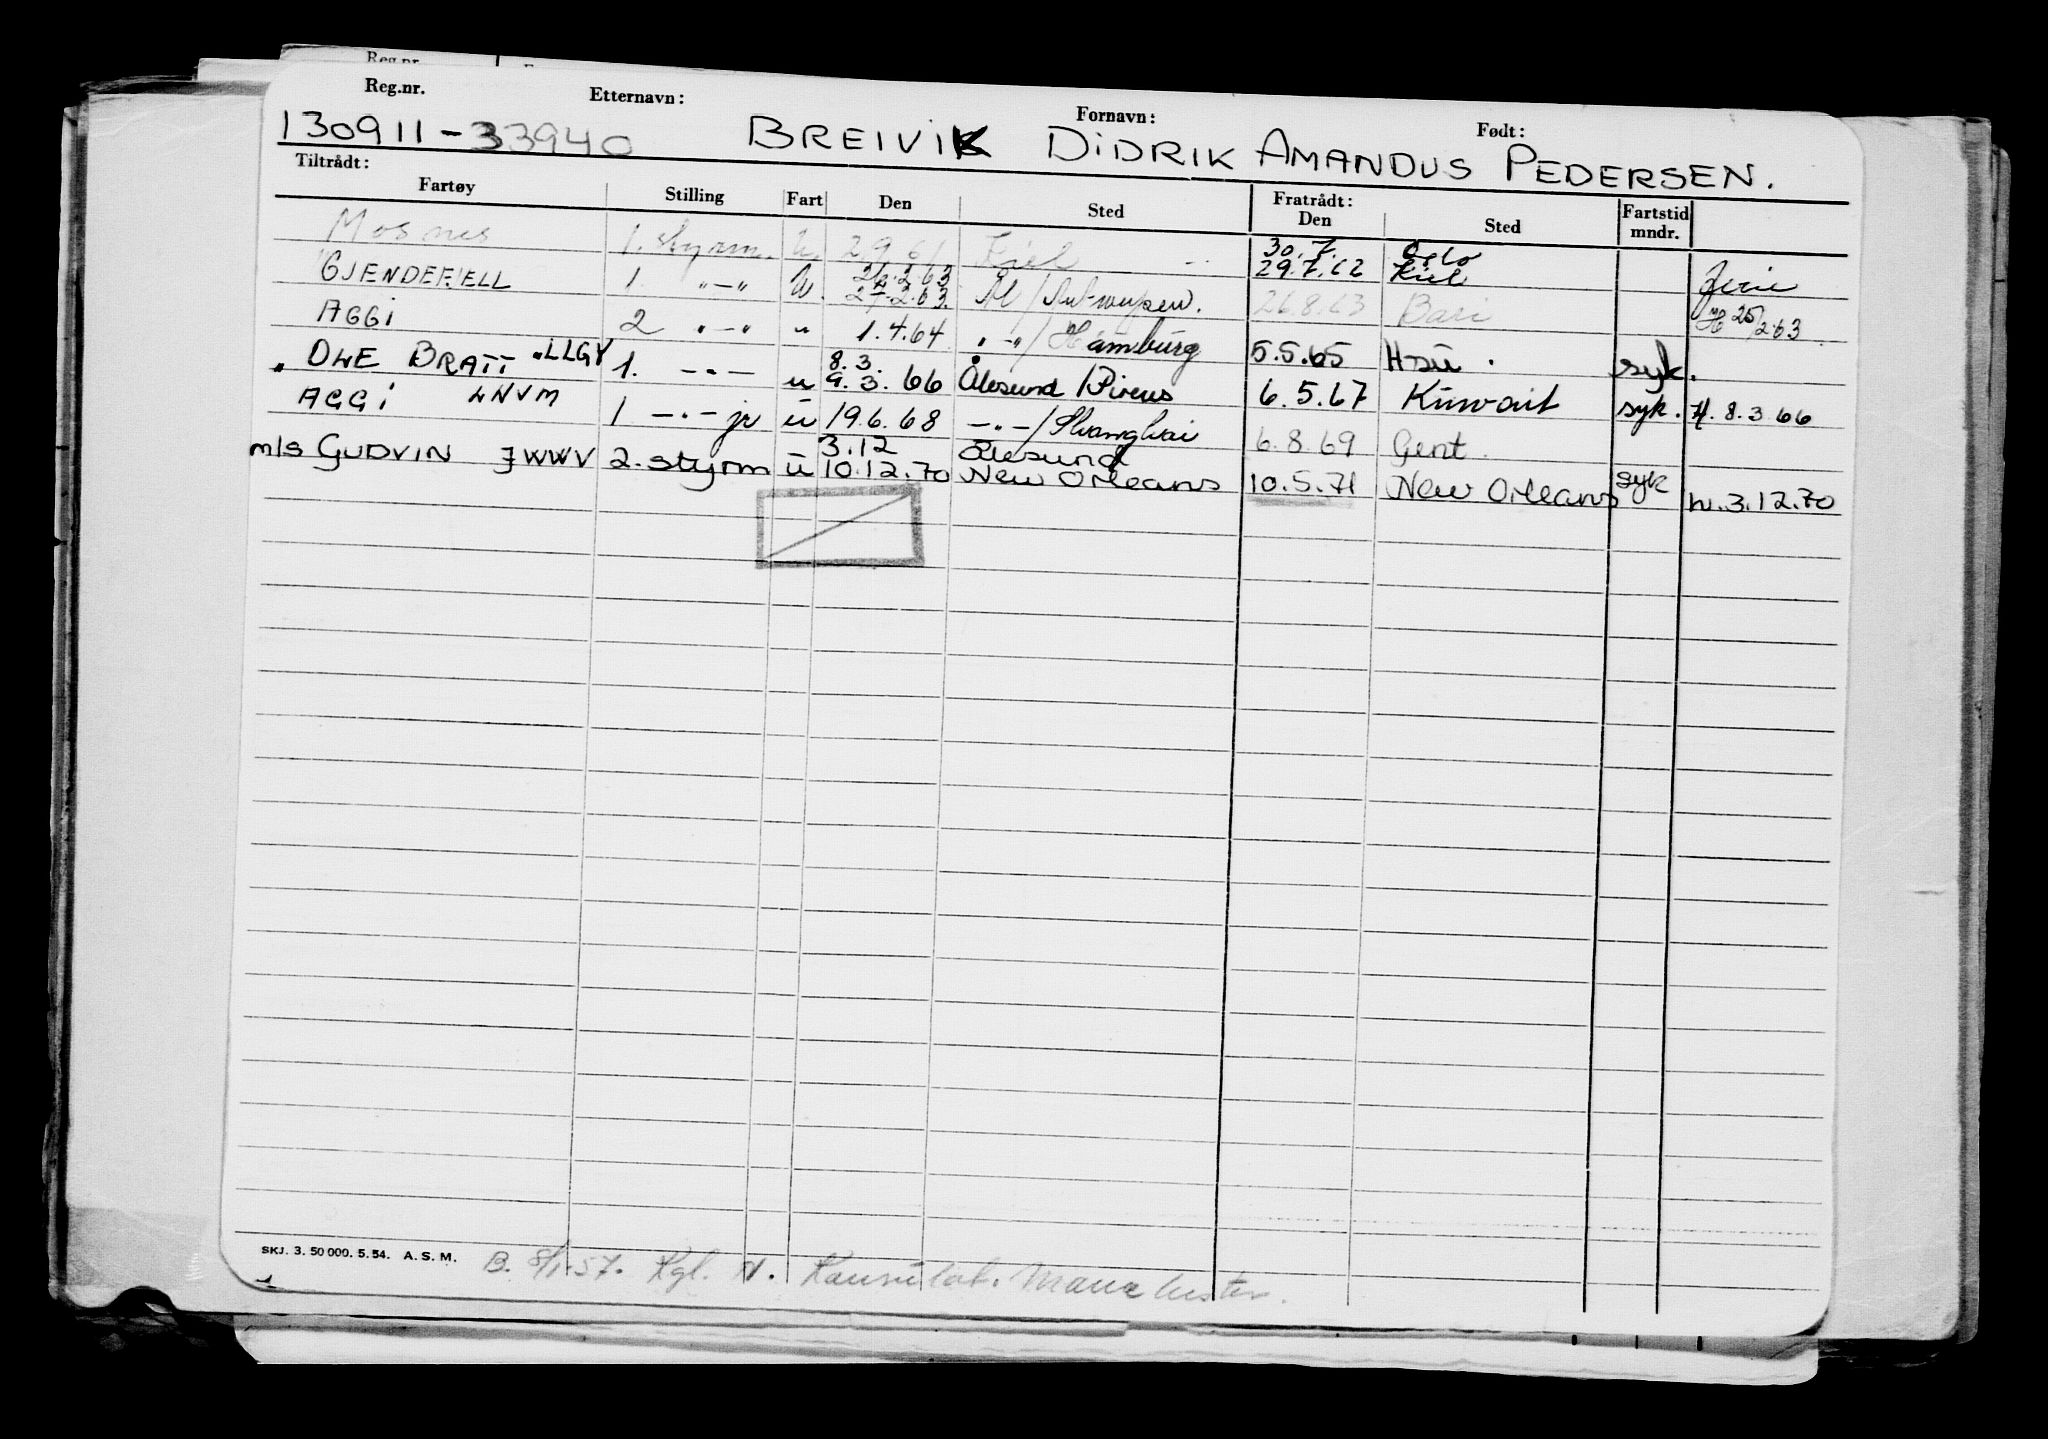 Reg.nr.
Reg.nr. Etternavn: Fornavn: Født:
130911-33940 BREIVIK DIDRIK AMANDUS PEDERSEN.
Tiltrådt: Fratrådt:
Fartøy Stilling Fart Den Sted Den Sted Fartstid mndr.
Mosnes 1. styrm. u. 2.9.61 Kiel 30.7. 29.7.62 Oslo Kiel Ferie
GJENDEFJELL 1. "-" u. 26.2.63 27.2.63. Ål/Antwerpen. 26.8.63 Bari H 25/2.63
AGGI 2 "-" " 1.4.64 "-"/Hamburg 5.5.65 syk.
" OLE BRATT "LLGY 1. -"- u 8.3. 9.3.66 Ålesund/Pireus 6.5.67 Kuwait syk. H. 8.3.66
AGGI LNVM 1 -"- jr u 19.6.68 -"-/Shanghai 6.8.69 Gent.
m/s GUDVIN JWWV 2. styrm u 3.12 10.12.70 Ålesund New Orleans 10.5.71 New Orleans syk h.3.12.70
SKJ. 3. 50 000. 5. 54. A. S. M. B. 8/1-57. Kgl. N. Konsulat. Manchester.